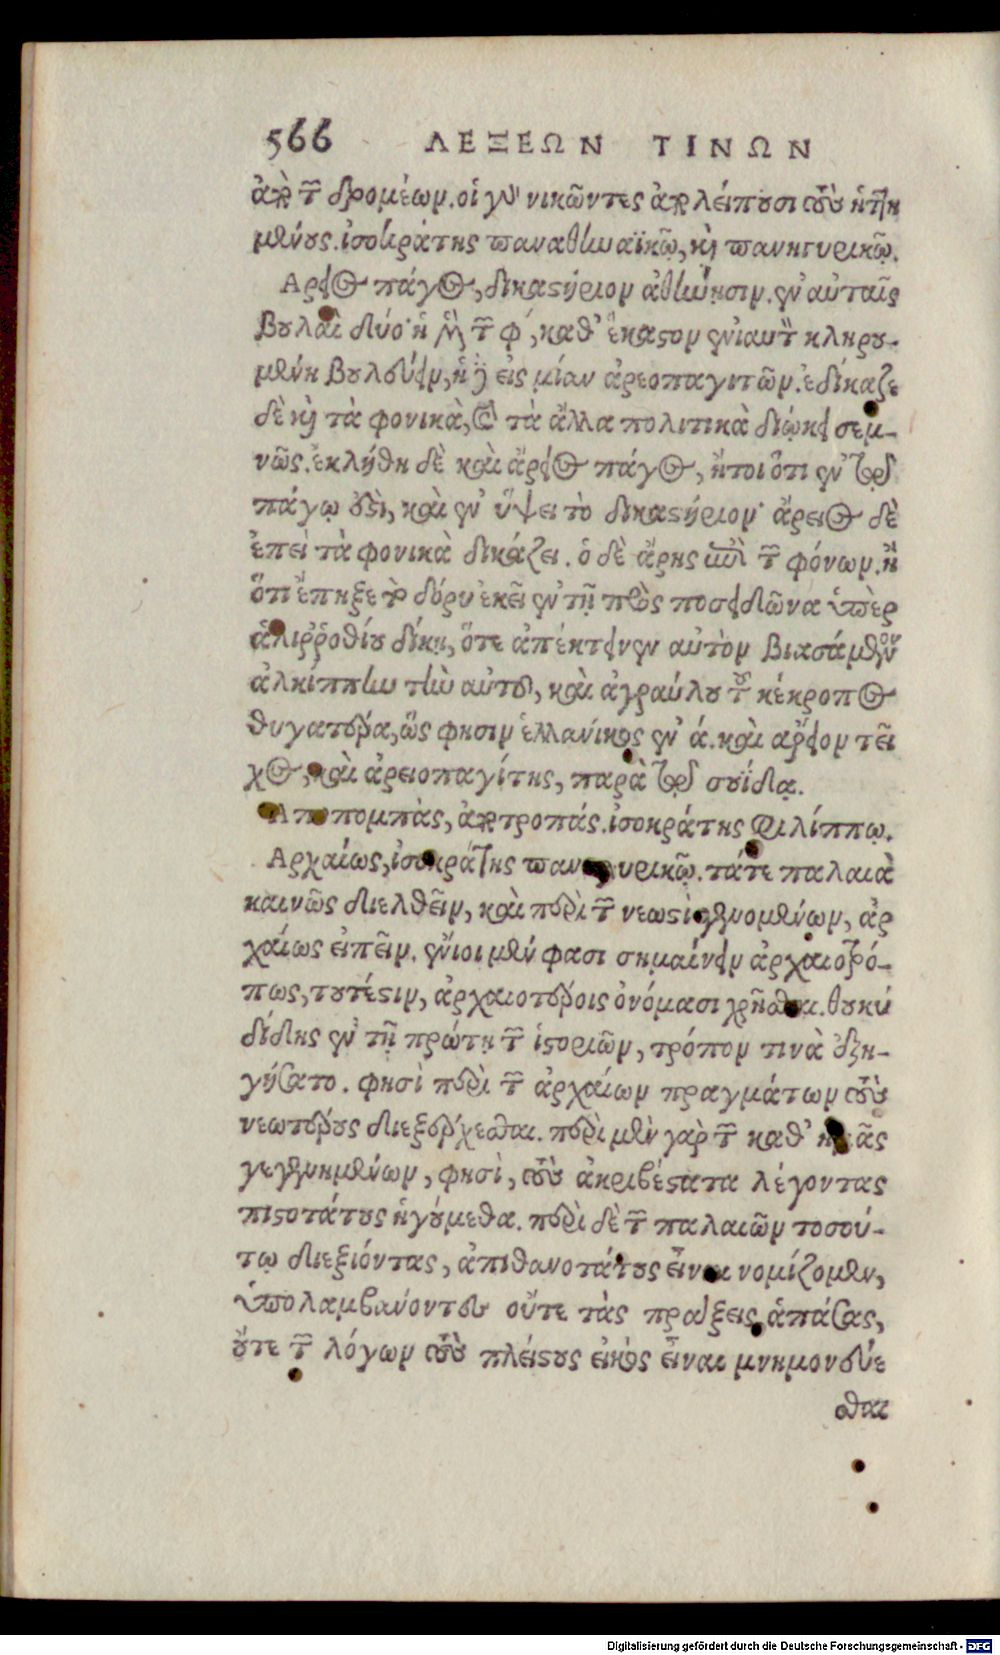 566 ΛΕΞΕΩΝ ΤΙΝΩΝ
ἀπὸ τῶν δρομέων. οἱ γὰρ νικῶντες ἀπολείπουσι τοὺς ἡττη
μένους. ἰσοκράτης παναθηναϊκῷ, καὶ πανηγυρικῷ.
Αρειος πάγος, δικαστήριον ἀθήνησιν. ἐν αὐταῖς
βουλαὶ δύο· ἡ μὲν τῶν φ΄, καθ' ἕκαστον ἐνιαυτὸν κληρου-
μένη βουλεύειν, ἡ δὲ εἰς μίαν ἀρεοπαγιτῶν. ἐδίκαζε
δὲ καὶ τὰ φονικὰ, καὶ τὰ ἄλλα πολιτικὰ διῴκει σεμ-
νῶς. ἐκλήθη δὲ καὶ ἄρειος πάγος, ἤτοι ὅτι ἐν τῷ
πάγῳ ἐστὶ, καὶ ἐν ὕψει τὸ δικαστήριον· ἄρειος δὲ
ἐπεὶ τὰ φονικὰ δικάζει. ὁ δὲ ἄρης ἐπὶ τῶν φόνων. ἢ
ὅτι ἔπηξε τὸ δόρυ ἐκεῖ ἐν τῇ πρὸς ποσειδῶνα ὑπὲρ
ἁλιῤῥοθίου δίκῃ, ὅτε ἀπέκτεινεν αὐτὸν βιασάμενον
ἀλκίππην τὴν αὐτοῦ, καὶ ἀγραύλου τοῦ κέκροπος
θυγατέρα, ὥς φησιν ἑλλάνικος ἐν ά. καὶ ἄρειον τεῖ
χος, καὶ ἀρειοπαγίτης, παρὰ τῷ σουίδᾳ.
Αποπομπὰς, ἀποτροπάς. ἰσοκράτης φιλίππῳ.
Αρχαίως, ἰσοκράτης πανηγυρικῷ. τά τε παλαιὰ
καινῶς διελθεῖν, καὶ περὶ τῶν νεωστὶ γενομένων, ἀρ
χαίως εἰπεῖν. ἔνιοι μέν φασι σημαίνειν ἀρχαιοτρό-
πως, τουτέστιν, ἀρχαιοτέροις ὀνόμασι χρῆσθαι. θουκυ
δίδης ἐν τῇ πρώτῃ τῶν ἱστοριῶν, τρόπον τινὰ ἐξη-
γήσατο. φησὶ περὶ τῶν ἀρχαίων πραγμάτων τοὺς
νεωτέρους διεξέρχεσθαι. περὶ μὲν γὰρ τῶν καθ' ἡμᾶς
γεγενημένων, φησὶ, τοὺς ἀκριβέστατα λέγοντας
πιστοτάτους ἡγούμεθα. περὶ δὲ τῶν παλαιῶν τοσού-
τῳ διεξιόντας, ἀπιθανοτάτους εἶναι νομίζομεν,
ὑπολαμβάνοντες οὔτε τὰς πράξεις ἁπάσας,
οὔτε τῶν λόγων τοὺς πλείστους εἰκὸς εἶναι μνημονεύε
σθαι
Digitalisierung gefördert durch die Deutsche Forschungsgemeinschaft - DFG